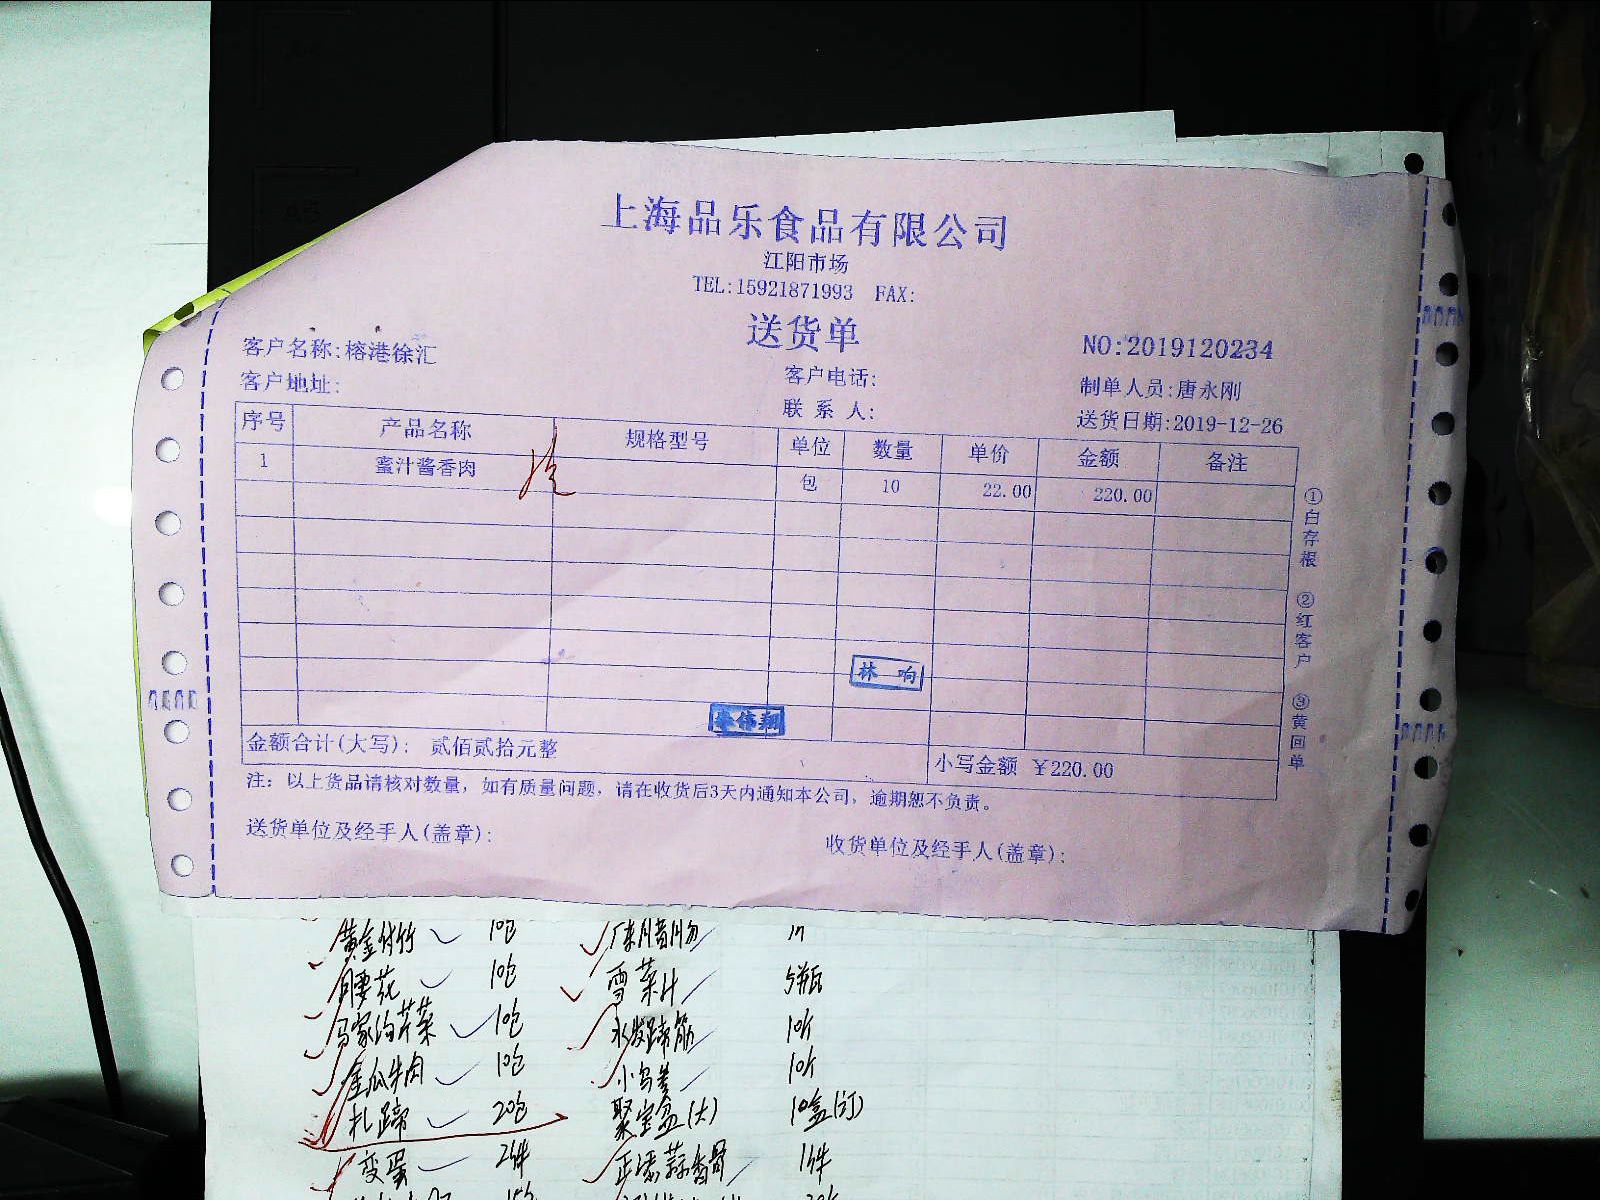 上海品乐食品有限公司
江阳市场
TEL:15921871993 FAX:
送货单
客户名称:榕港徐汇
NO:2019120234
客户地址:
客户电话:
制单人员:唐永刚
联系人:
送货日期:2019-12-26
序号 产品名称 规格型号 单位 数量 单价 金额 备注
1 蜜汁酱香肉 包 10 22.00 220.00
①白存根 ②红客户 ③黄回单
林响
金额合计(大写): 贰佰贰拾元整
小写金额 ￥220.00
注: 以上货品请核对数量, 如有质量问题, 请在收货后3天内通知本公司, 逾期恕不负责。
送货单位及经手人(盖章):
收货单位及经手人(盖章):
黄金付竹 10包
腰花 10包 雪菜汁 5瓶
马家沟芹菜 10包 水发蹄筋 10斤
金瓜牛肉 10包 小乌参 10斤
扎蹄 20包 聚宝盆(大) 10盒(订)
变蛋 2件 蒜香骨 1件